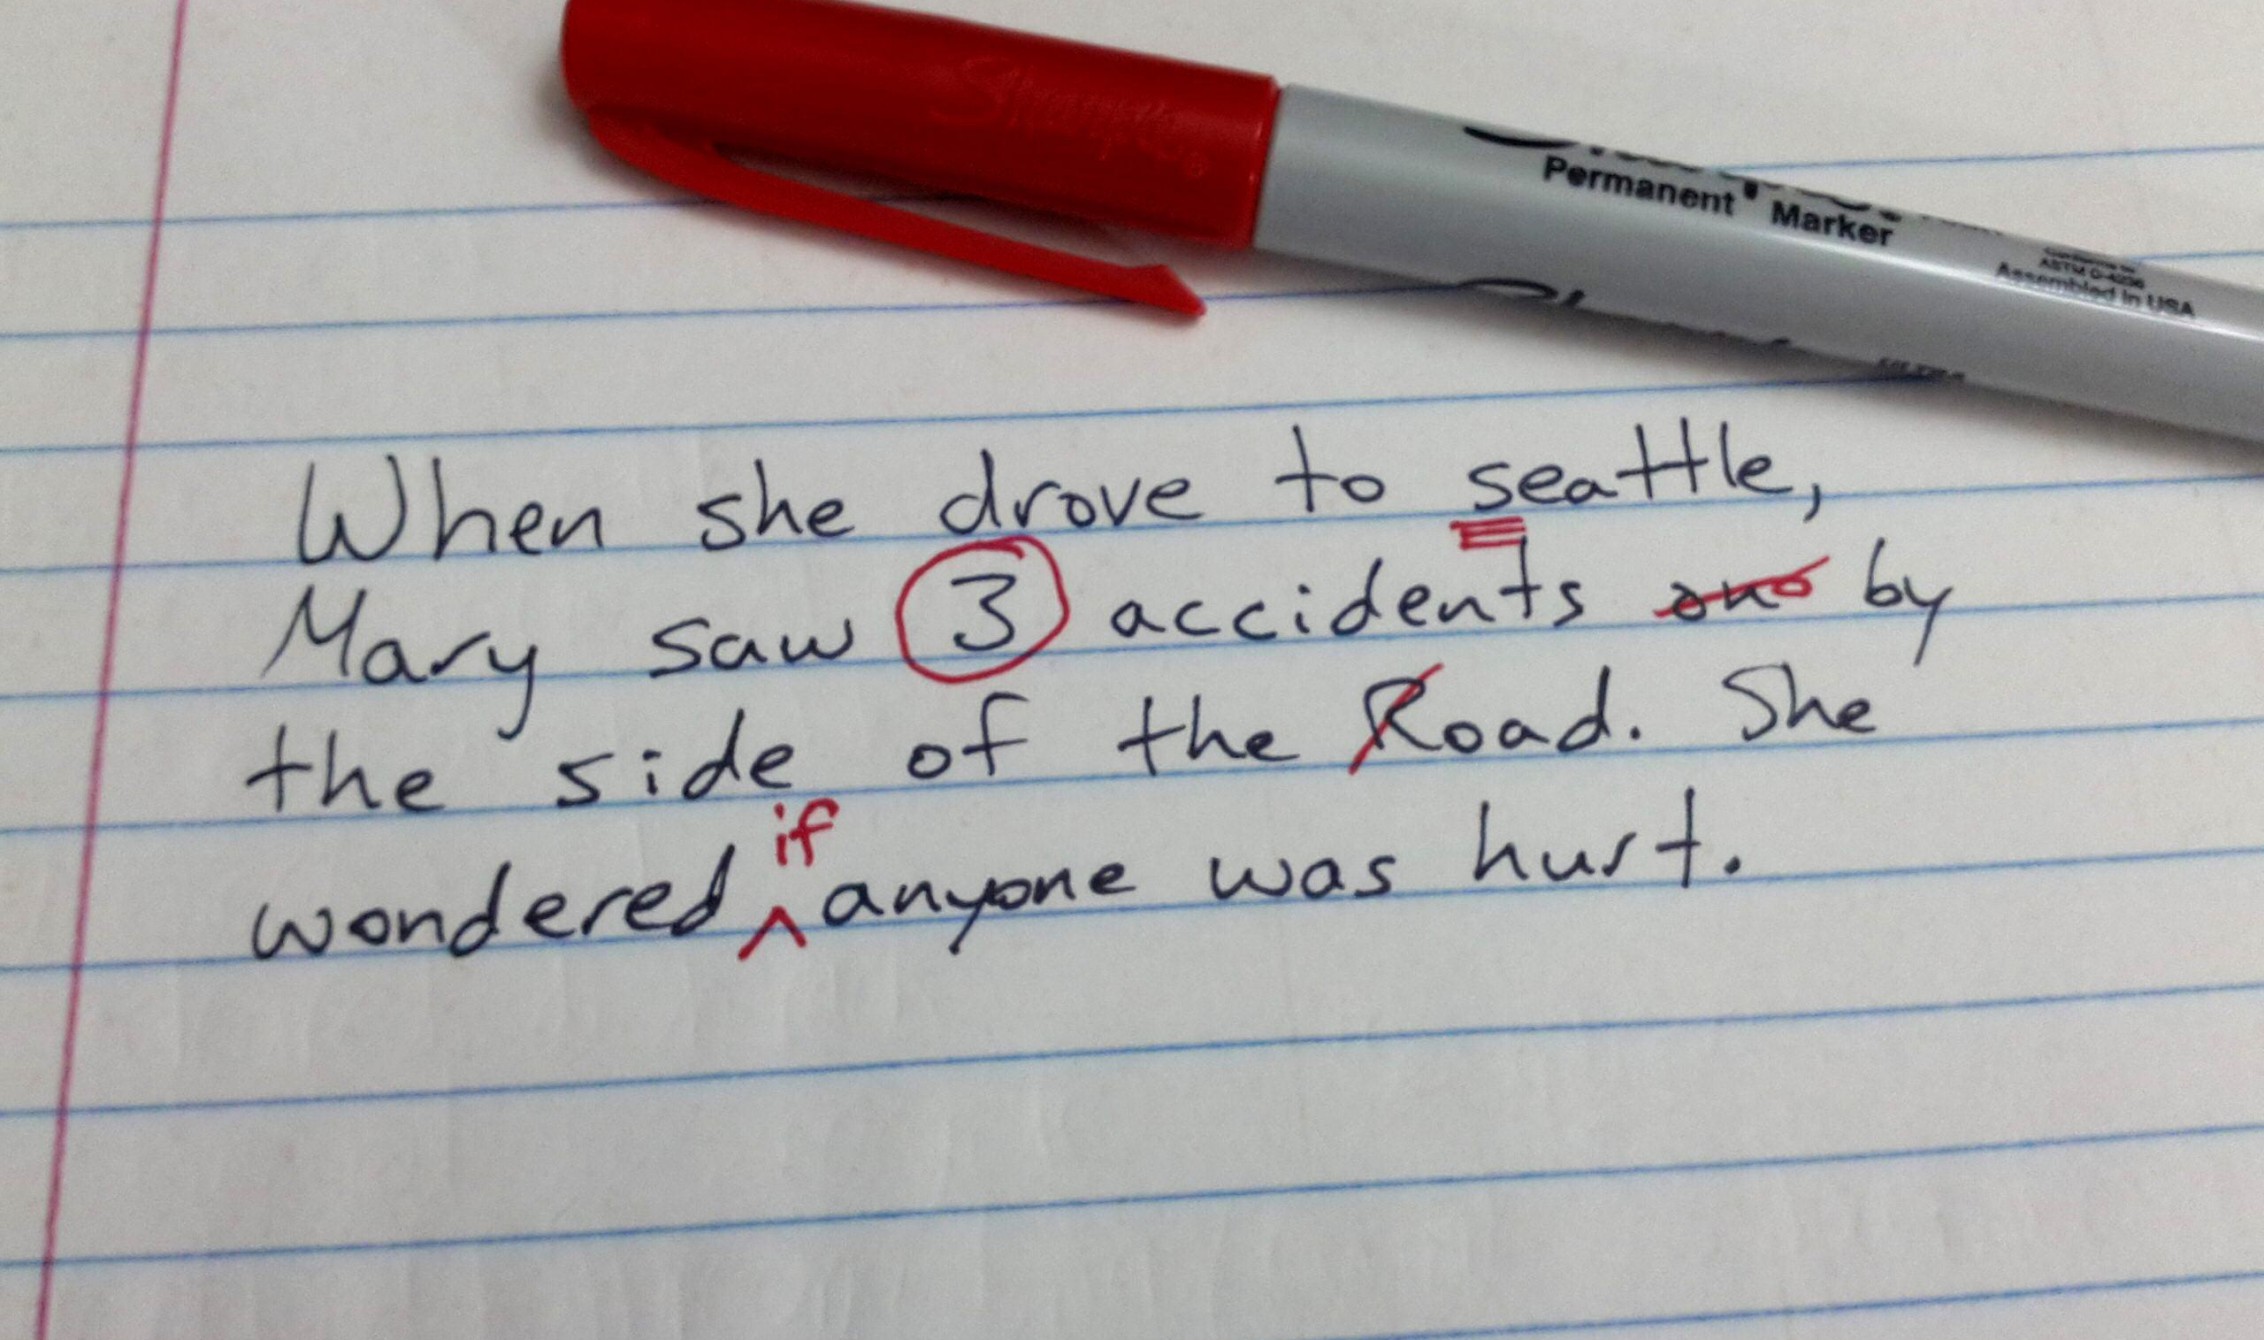 Sharpie®
Permanent Marker
ASTM D-4236
Assembled in USA
When she drove to seattle,
Mary saw 3 accidents on by
the side of the Road. She
if
wondered ^ anyone was hurt.